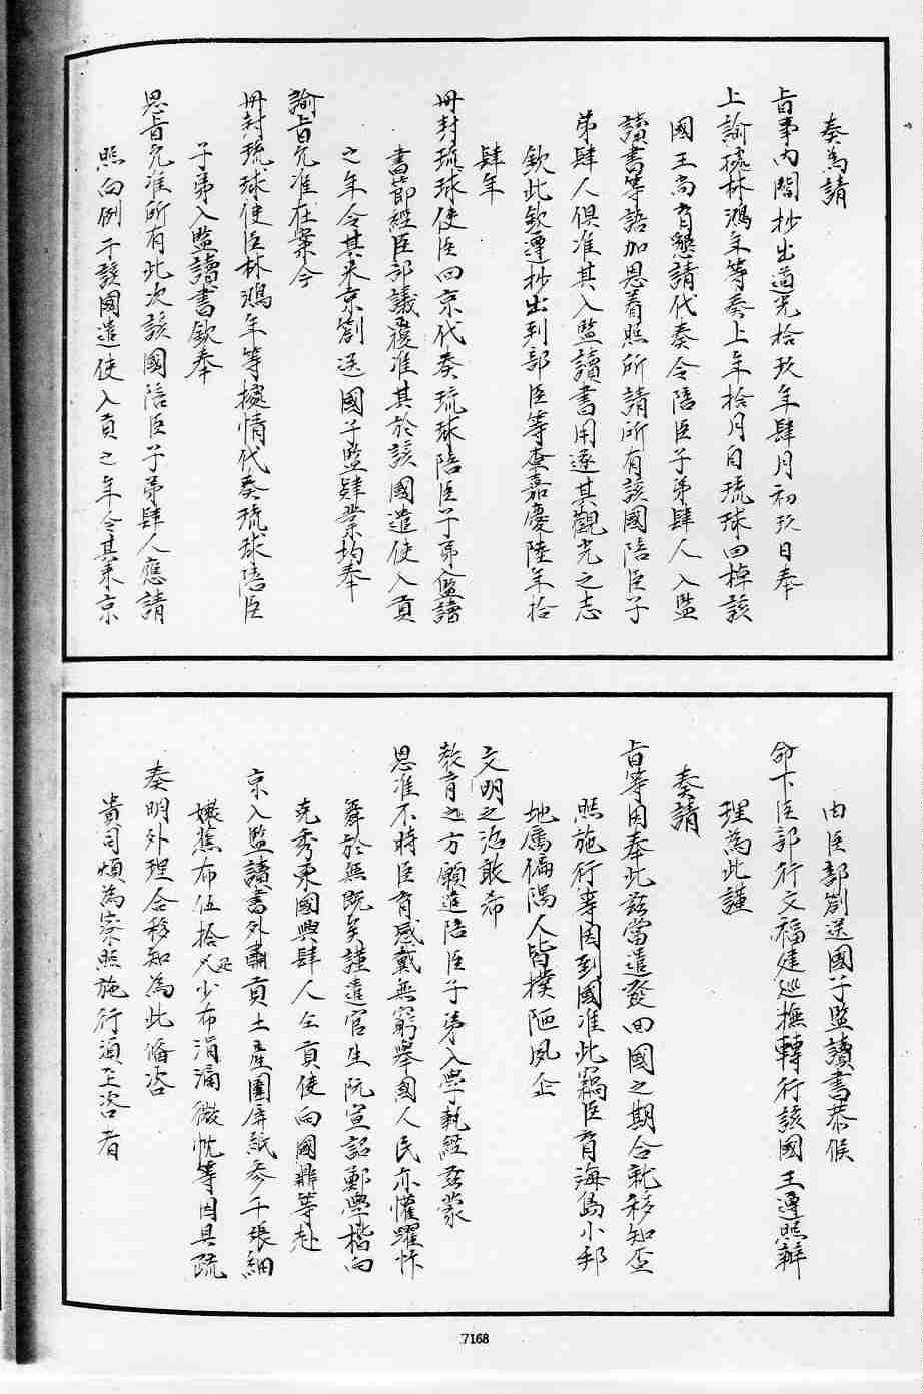 奏為請
旨事內閣抄出道光拾玖年肆月初玖日奉
上諭據林鴻年等奏上年拾月自琉球回棹該
國王尚育懇請代奏令陪臣子弟肆人入監
讀書等語加恩着照所請所有該國陪臣子
弟肆人俱准其入監讀書用遂其觀光之志
欽此欽遵抄出到部臣等查嘉慶陸年拾
肆年
冊封琉球使臣回京代奏琉球陪臣子弟入監讀
書節經臣部議覆准其於該國遣使入貢
之年令其来京劄送國子監肄業均奉
諭旨允准在案今
冊封琉球使臣林鴻年等據情代奏琉球陪臣
子弟入監讀書欽奉
恩旨允准所有此次該國陪臣子弟肆人應請
照向例于該國遣使入貢之年令其来京
由臣部劄送國子監讀書恭候
命下臣部行文福建巡撫轉行該國王遵照辦
理為此謹
奏請
旨等因奉此茲當遣發回國之期合就移知盃
照施行等因到國准此竊臣育海島小邦
地属偏隅人皆撲陋夙企
文明之治敢希
教育之方願遣陪臣子弟入學執經茲蒙
恩准不時臣育感戴無窮舉國人民亦懽躍忭
舞於無既矣謹遣官生阮宣詔鄭學楷向
克秀東國興肆人仝貢使向國鼎等赴
京入監讀書外肅貢土產圍屏紙参千張細
嫩蕉布伍拾疋少布涓滴微忱等因具疏
奏明外理合移知為此備咨
貴司煩為察照施行須至咨者
7168